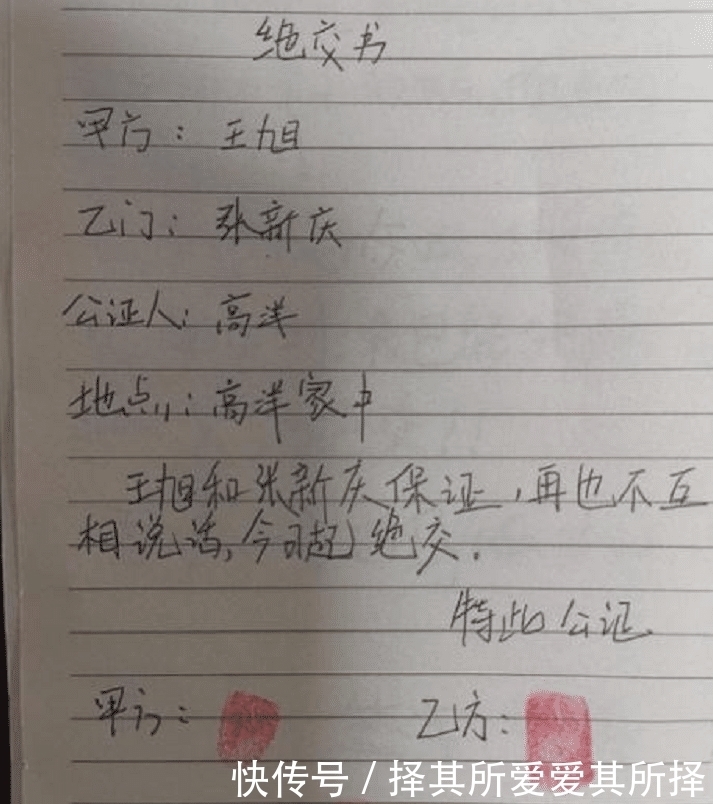 绝交书
甲方：王旭
乙门：张新庆
公证人：高洋
地点：高洋家中
王旭和张新庆保证，再也不互
相说话，今日起绝交.
特此公证
甲方：
乙方：
快传号 / 择其所爱爱其所择